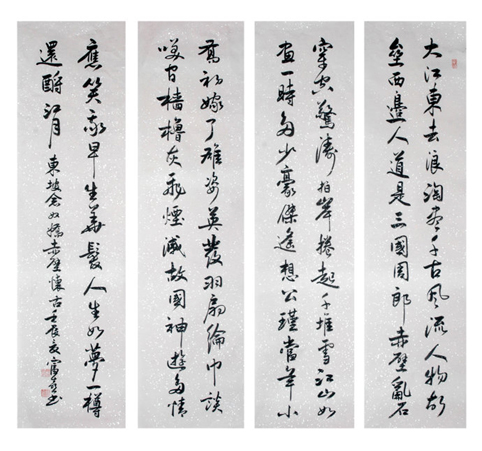 大江東去浪淘盡千古風流人物故
壘西邊人道是三國周郎赤壁亂石
穿空驚濤拍岸捲起千堆雪江山如
畫一時多少豪傑遙想公瑾當年小
喬初嫁了雄姿英發羽扇綸巾談
笑間檣櫓灰飛煙滅故國神遊多情
應笑我早生華髮人生如夢一樽
還酹江月 東坡念奴嬌赤壁懷古壬辰書